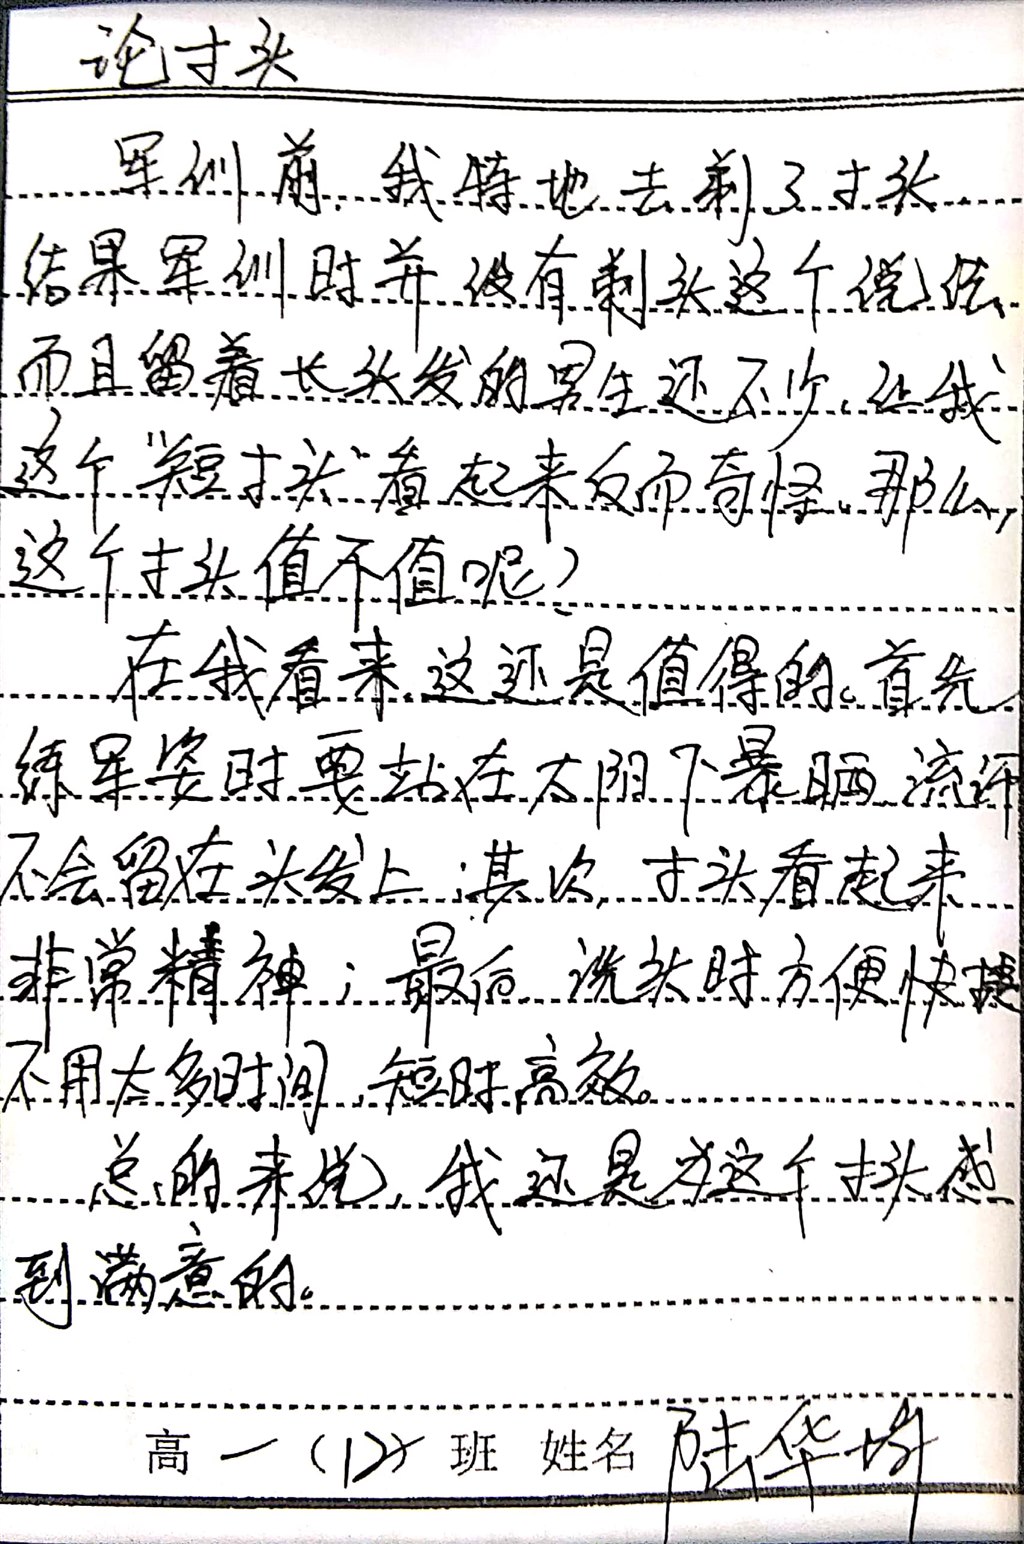 论寸头
军训前,我特地去剃了寸头
结果军训时并没有剃头这个说法,
而且留着长头发的男生还不少,让我
这个“短寸头”看起来反而奇怪。那么,
这个寸头值不值呢?
在我看来,这还是值得的。首先
练军姿时要站在太阳下暴晒,流汗
不会留在头发上;其次,寸头看起来
非常精神;最后,洗头时方便快捷
不用太多时间,短时高效。
总的来说,我还是为这个寸头感
到满意的。
高一(12)班 姓名 陆华